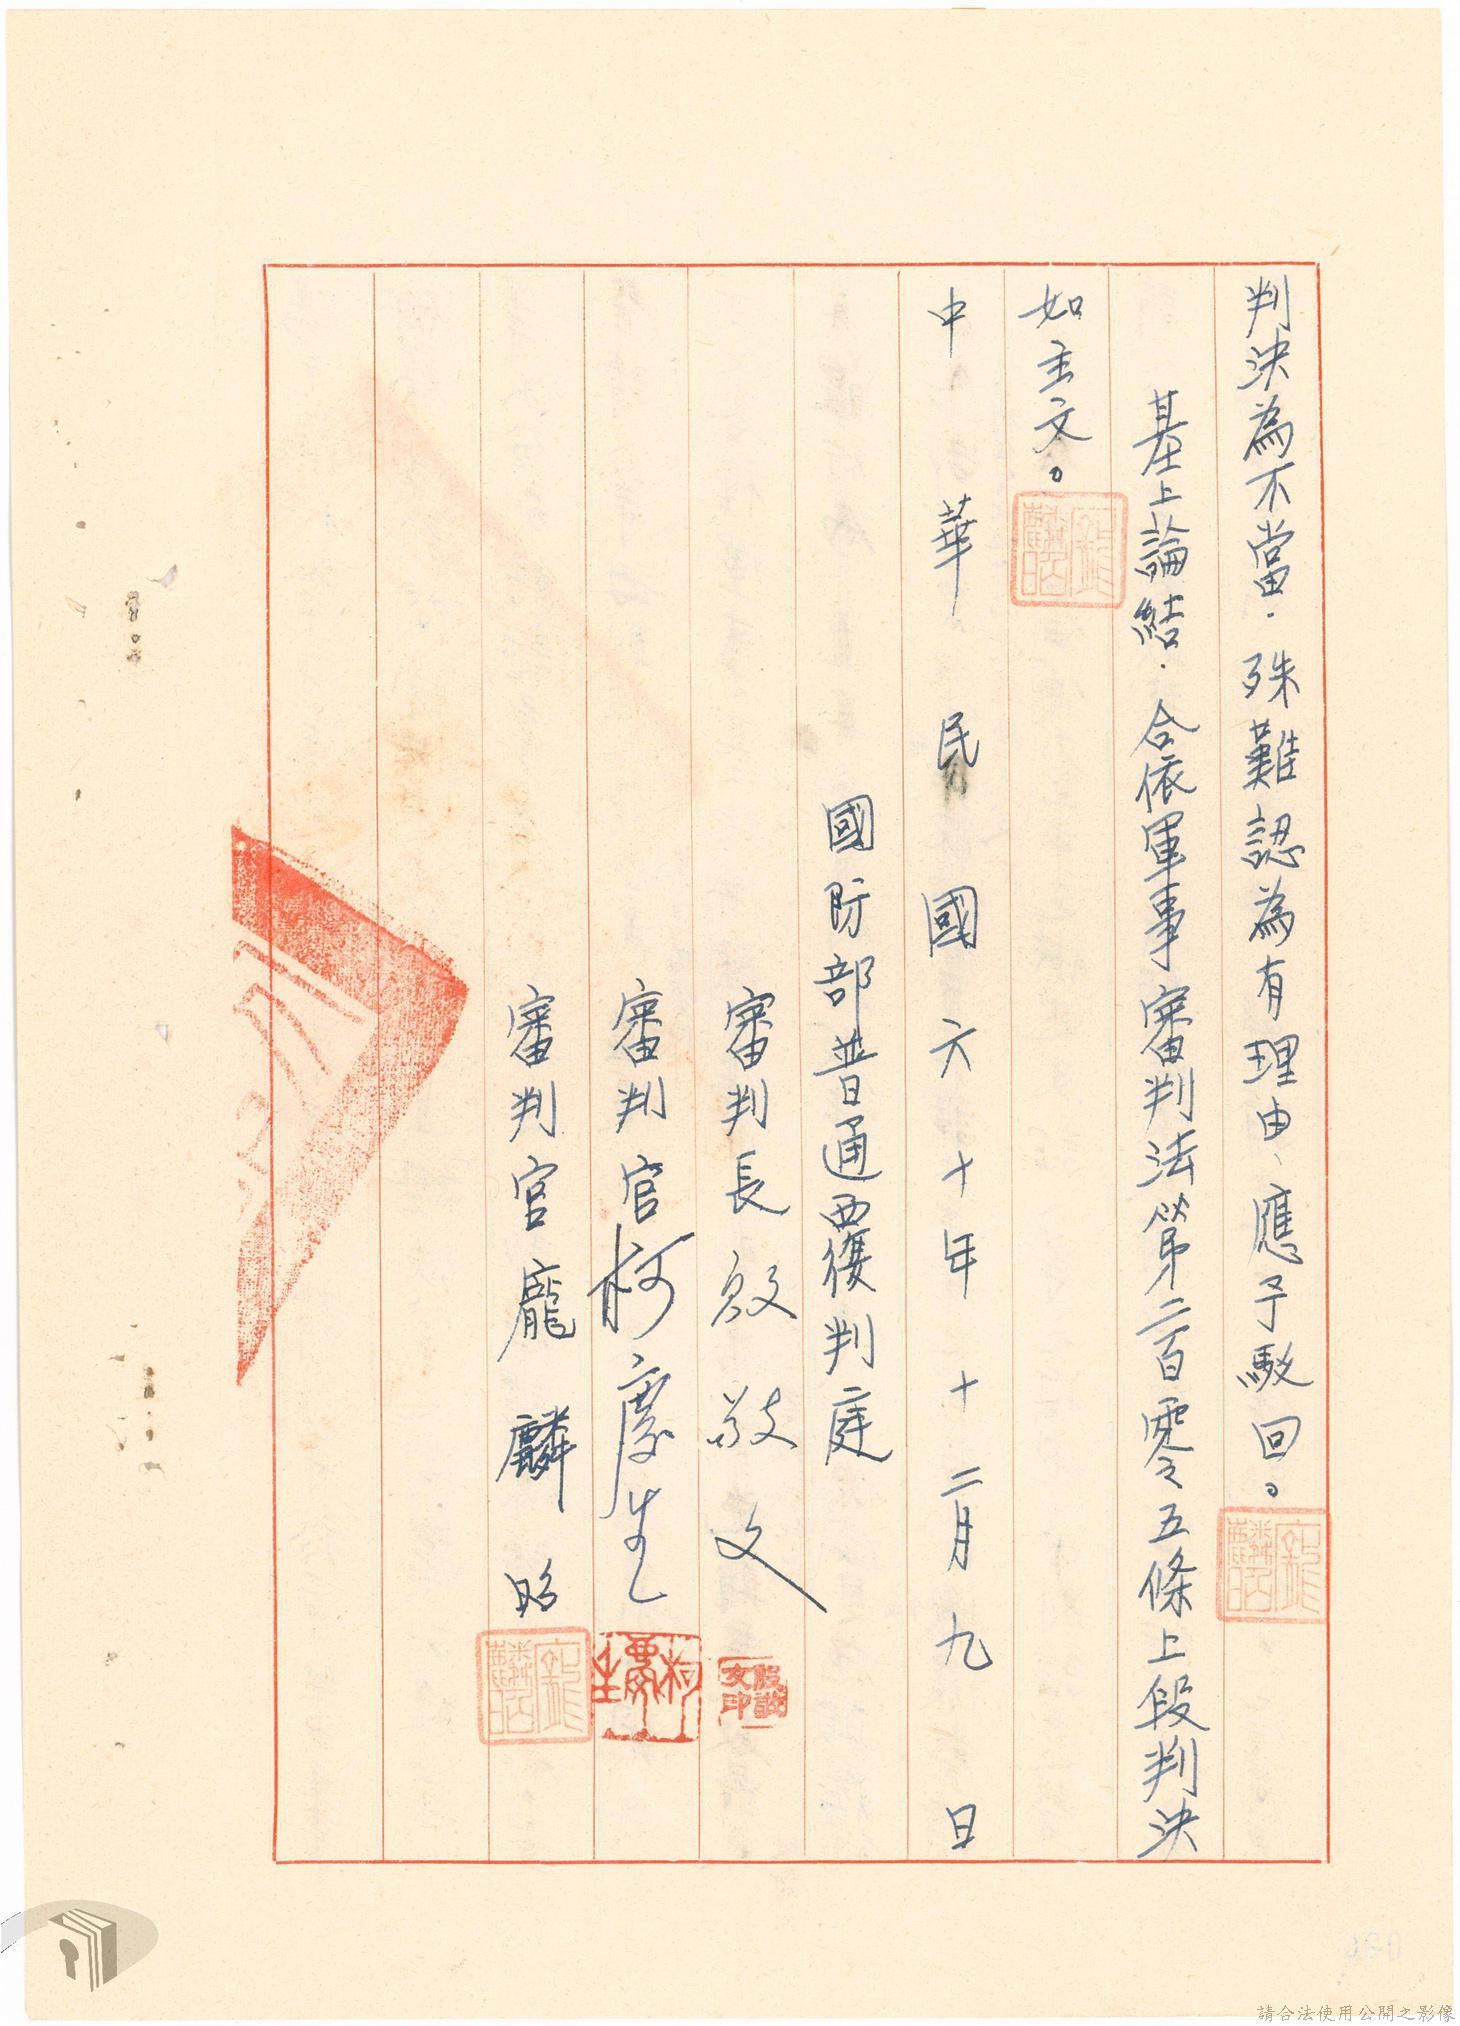 判決為不當．殊難認為有理由、應予駁回。
基上論結．合依軍事審判法第二百零五條上段判決
如主文。
中華民國六十年十二月九日
國防部普通覆判庭
審判長殷敬文
審判官柯慶生
審判官龐麟昭
請合法使用公開之影像